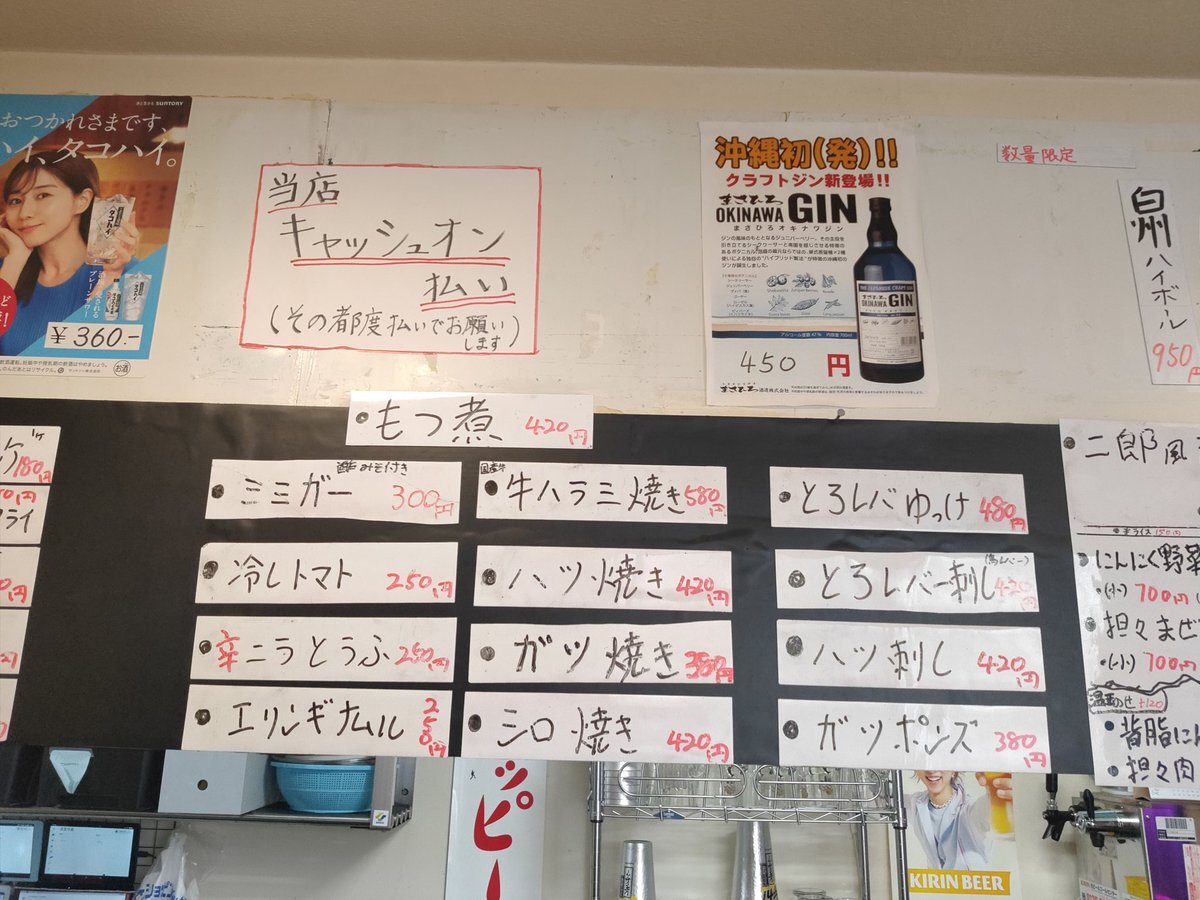 SUNTORY
おつかれさまです、
ハイ、タコハイ。
¥360.-
お酒
当店
キャッシュオン
払い
(その都度払いでお願い
します)
沖縄初(発)!!
クラフトジン新登場!!
まさひろ
OKINAWA GIN
まさひろオキナワジン
アルコール度数 47%
450 円
まさひろ酒造株式会社
数量限定
白州ハイボール
950円
もつ煮 420円
酢みそ付き
ミミガー 300円
冷しトマト 250円
辛ニラとうふ 250円
エリンギナムル 250円
国産牛
牛ハラミ焼き 580円
ハツ焼き 420円
ガツ焼き 380円
シロ焼き 420円
とろレバゆっけ 480円
とろレバー刺し 420円
ハツ刺し 420円
ガツポンズ 380円
180円
ライ
二郎風
にんにく野菜
(小) 700円
担々まぜ
(小) 700円
温玉のせ +120
背脂にん
担々肉
ッピー
KIRIN BEER